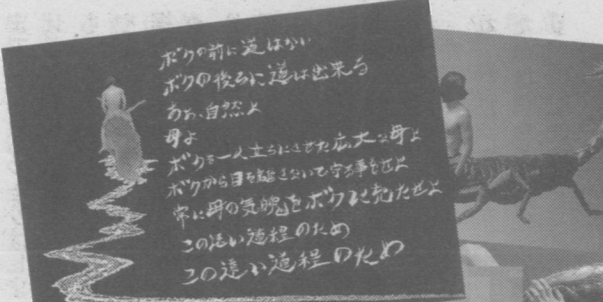 ボクの前に道はない
ボクの後ろに道は出来る
あゝ、自然よ
母よ
ボクを一人立ちにさせた広大な母よ
ボクから目を離さないで守る事をせよ
常に母の気魄をボクに充たせよ
この遠い道程のため
この遠い道程のため